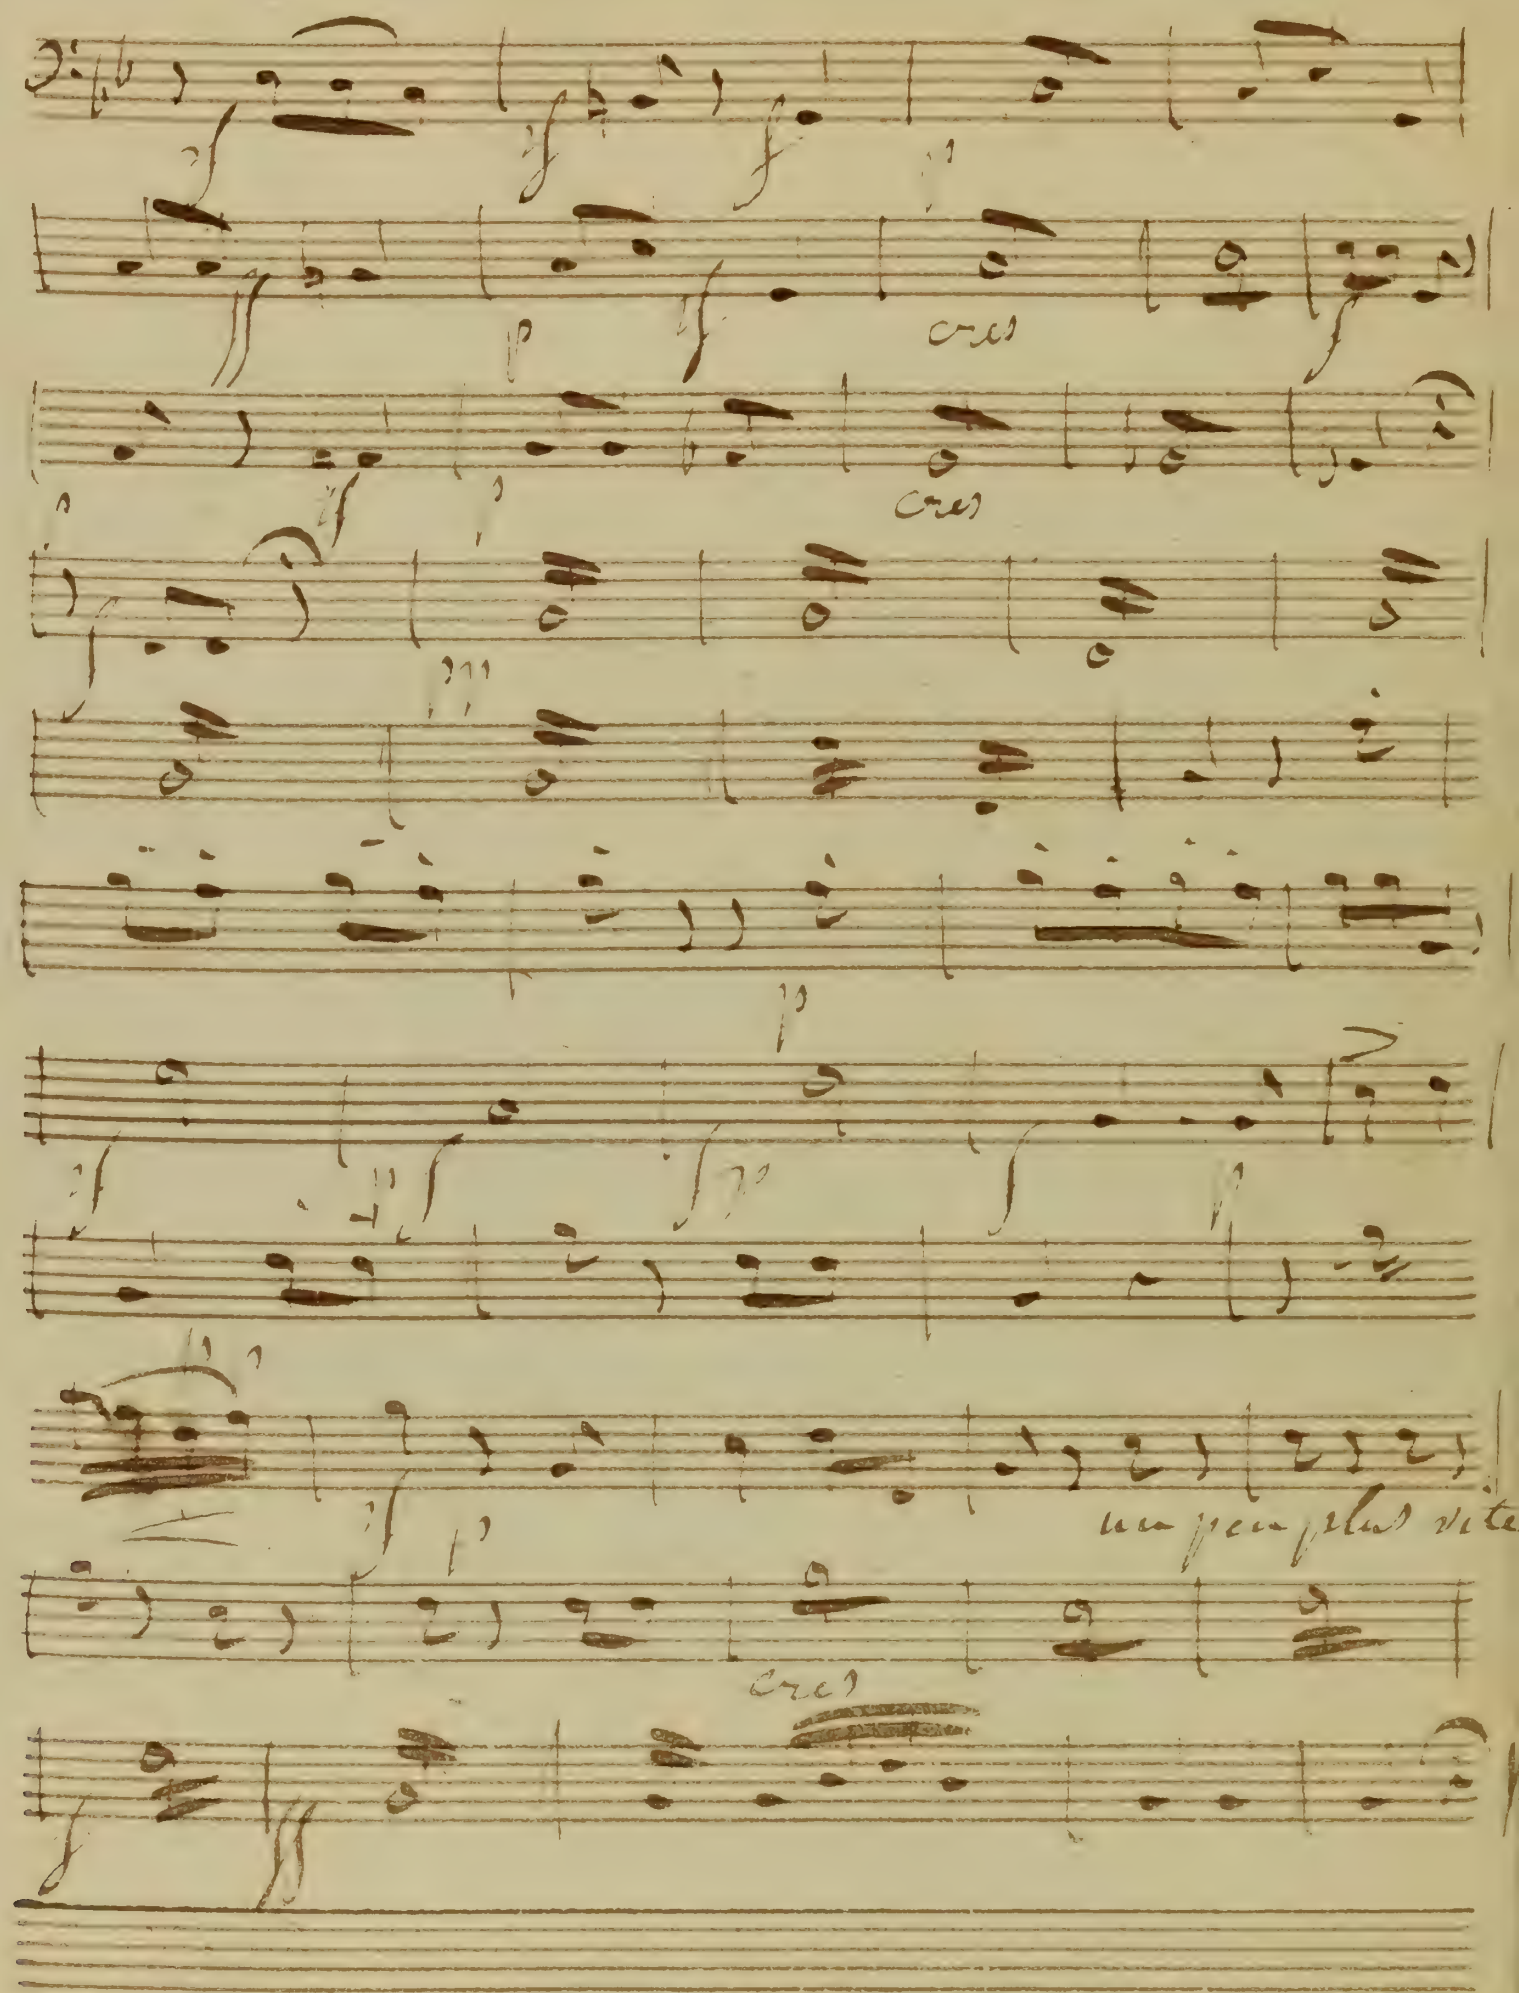 sf sf f p
ff p sf cres f
p sf p cres
f ppp
p
sf p f fp f p
sf p un peu plus vite
cres
f ff